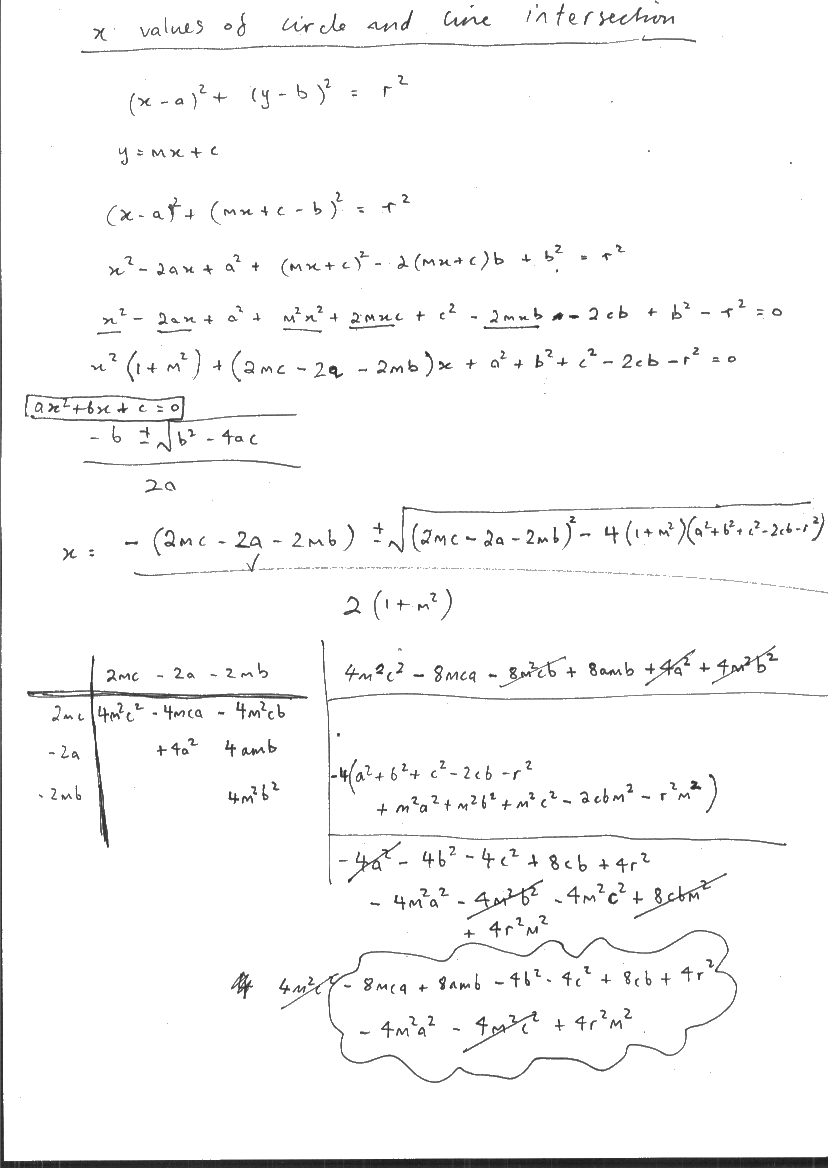 x values of circle and line intersection
(x-a)² + (y-b)² = r²
y = mx + c
(x-a)² + (mx+c-b)² = r²
x² - 2ax + a² + (mx+c)² - 2(mx+c)b + b² = r²
x² - 2ax + a² + m²x² + 2mxc + c² - 2mxb - 2cb + b² - r² = 0
x²(1+m²) + (2mc - 2a - 2mb)x + a² + b² + c² - 2cb - r² = 0
ax²+bx+c=0
-b ± √b² - 4ac
2a
x = -(2mc - 2a - 2mb) ± √(2mc - 2a - 2mb)² - 4(1+m²)(a²+b²+c²-2cb-r²)
2(1+m²)
2mc - 2a - 2mb
2mc 4m²c² - 4mca - 4m²cb
-2a +4a² 4amb
-2mb 4m²b²
4m²c² - 8mca - 8m²cb + 8amb + 4a² + 4m²b²
-4(a²+b²+c²-2cb-r²
+ m²a² + m²b² + m²c² - 2cbm² - r²m²)
-4a² - 4b² - 4c² + 8cb + 4r²
- 4m²a² - 4m²b² - 4m²c² + 8cbm²
+ 4r²m²
4m²c² - 8mca + 8amb - 4b² - 4c² + 8cb + 4r²
- 4m²a² - 4m²c² + 4r²m²